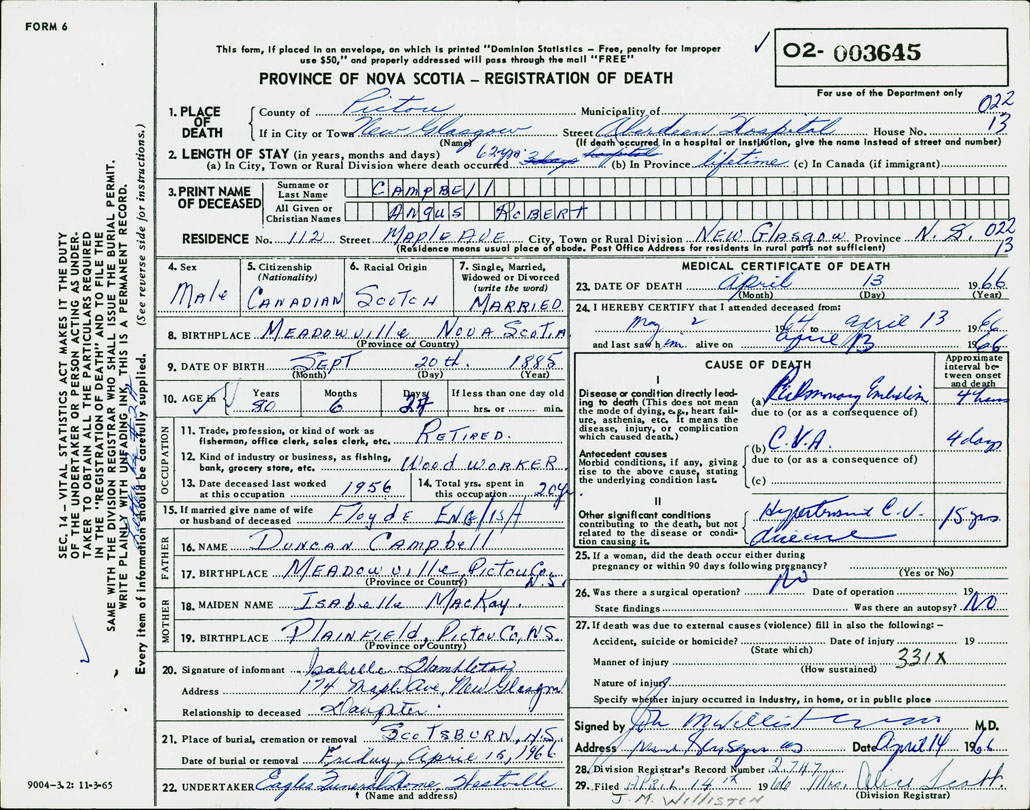 FORM 6
This form, if placed in an envelope, on which is printed "Dominion Statistics – Free, penalty for improper
use $50," and properly addressed will pass through the mail "FREE"
PROVINCE OF NOVA SCOTIA – REGISTRATION OF DEATH
✓ 02- 003645
For use of the Department only
022
13
1. PLACE OF DEATH
County of Pictou Municipality of
If in City or Town New Glasgow Street Aberdeen Hospital House No.
(Name) (If death occurred in a hospital or institution, give the name instead of street and number)
2. LENGTH OF STAY (in years, months and days)
(a) In City, Town or Rural Division where death occurred 62 yrs. (b) In Province lifetime (c) In Canada (if immigrant)
3. PRINT NAME OF DECEASED
Surname or Last Name CAMPBELL
All Given or Christian Names ANGUS ROBERT
RESIDENCE No. 112 Street MAPLE AVE City, Town or Rural Division NEW GLASGOW Province N.S. 022
13
(Residence means usual place of abode. Post Office Address for residents in rural parts not sufficient)
4. Sex
Male
5. Citizenship (Nationality)
CANADIAN
6. Racial Origin
SCOTCH
7. Single, Married, Widowed or Divorced (write the word)
MARRIED
8. BIRTHPLACE MEADOWVILLE NOVA SCOTIA
(Province or Country)
9. DATE OF BIRTH SEPT 20th. 1885
(Month) (Day) (Year)
10. AGE in Years 80 Months 6 Days If less than one day old hrs. or min.
OCCUPATION
11. Trade, profession, or kind of work as fisherman, office clerk, sales clerk, etc. RETIRED.
12. Kind of industry or business, as fishing, bank, grocery store, etc. WOOD WORKER
13. Date deceased last worked at this occupation 1956
14. Total yrs. spent in this occupation 20 y.
15. If married give name of wife or husband of deceased Floyde ENGLISH
FATHER
16. NAME DUNCAN Campbell
17. BIRTHPLACE MEADOWVILLE, PICTOU CO., N.S.
(Province or Country)
MOTHER
18. MAIDEN NAME ISABELLE MacKay.
19. BIRTHPLACE PLAINFIELD, PICTOU CO, NS.
(Province or Country)
20. Signature of informant Isabelle Hambleton
Address 174 Maple Ave, New Glasgow
Relationship to deceased Daughter.
21. Place of burial, cremation or removal SCOTSBURN, N.S.
Date of burial or removal Friday, April 15, 1966
22. UNDERTAKER Eagles Funeral Home, Westville
(Name and address)
MEDICAL CERTIFICATE OF DEATH
23. DATE OF DEATH April 13 1966
(Month) (Day) (Year)
24. I HEREBY CERTIFY that I attended deceased from:
May 2 1964 to april 13 1966
and last saw him alive on april 13 1966
CAUSE OF DEATH
Approximate interval between onset and death
I
Disease or condition directly leading to death (This does not mean the mode of dying, e.g., heart failure, asthenia, etc. It means the disease, injury, or complication which caused death.)
(a) Pulmonary Embolism 4 hours
due to (or as a consequence of)
Antecedent causes
Morbid conditions, if any, giving rise to the above cause, stating the underlying condition last.
(b) C.V.A. 4 days
due to (or as a consequence of)
(c)
II
Other significant conditions contributing to the death, but not related to the disease or condition causing it.
C.V. disease 15 yrs
25. If a woman, did the death occur either during pregnancy or within 90 days following pregnancy?
(Yes or No)
26. Was there a surgical operation? NO Date of operation 19
State findings Was there an autopsy? NO
27. If death was due to external causes (violence) fill in also the following: –
Accident, suicide or homicide? Date of injury 19
(State which)
Manner of injury 331X
(How sustained)
Nature of injury
Specify whether injury occurred in industry, in home, or in public place
Signed by M.D.
Address New Glasgow NS Date April 14 1966
28. Division Registrar's Record Number 2747
29. Filed APRIL 14 1966 Mrs. Alice Scott.
(Division Registrar)
J. M. WILLISTON
SEC. 14 – VITAL STATISTICS ACT MAKES IT THE DUTY
OF THE UNDERTAKER OR PERSON ACTING AS UNDER-
TAKER TO OBTAIN ALL THE PARTICULARS REQUIRED
IN THE "REGISTRATION OF DEATH" AND TO FILE THE
SAME WITH THE DIVISION REGISTRAR WHO SHALL ISSUE THE BURIAL PERMIT.
WRITE PLAINLY WITH UNFADING INK, THIS IS A PERMANENT RECORD.
Every item of information should be carefully supplied. (See reverse side for instructions.)
9004-3.2: 11-3-65